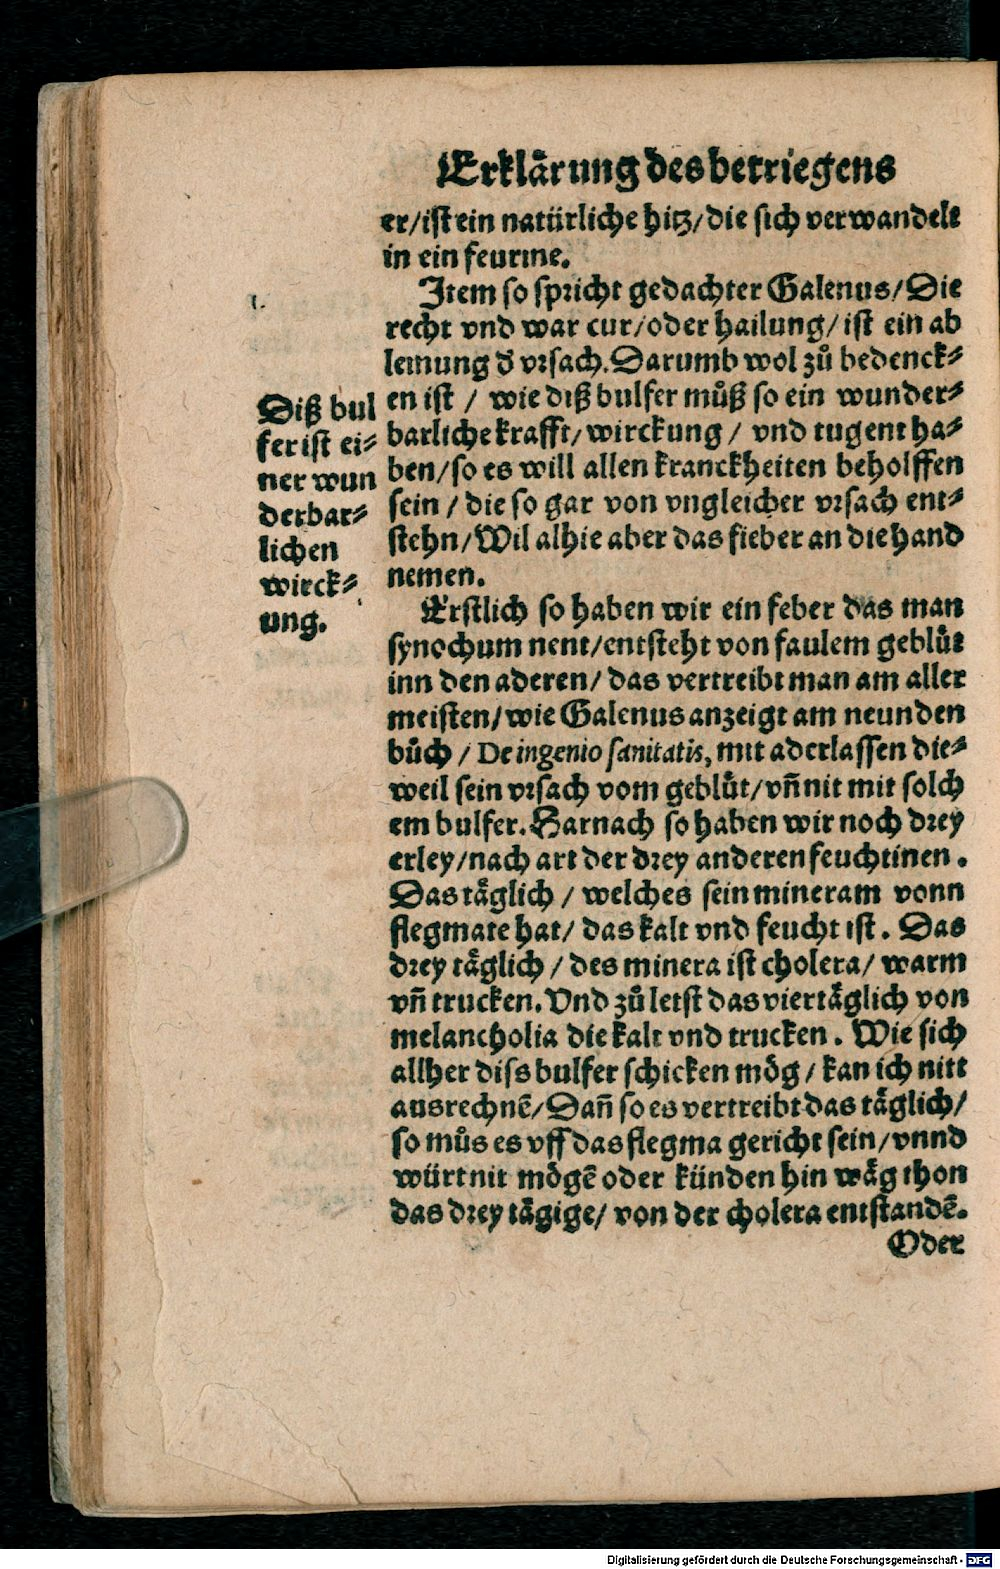 Erklårung des betriegens
er/ist ein natürliche hitz/die sich verwandelt
in ein feurine.
Item so spricht gedachter Galenus/Die
recht vnd war cur/oder hailung/ist ein ab
leinung d vrsach. Darumb wol zů bedenck⸗
en ist / wie diß bulfer můß so ein wunder⸗
barliche krafft/wirckung / vnd tugent ha⸗
ben/so es will allen kranckheiten beholffen
sein / die so gar von vngleicher vrsach ent⸗
stehn/Wil alhie aber das fieber an die hand
nemen.
Diß bul
fer ist ei⸗
ner wun
derbar⸗
lichen
wirck⸗
ung.
Erstlich so haben wir ein feber das man
synochum nent/entsteht von faulem geblůt
inn den aderen/das vertreibt man am aller
meisten/wie Galenus anzeigt am neunden
bůch / De ingenio sanitatis, mit aderlassen die⸗
weil sein vrsach vom geblůt/vñ nit mit solch
em bulfer. Harnach so haben wir noch drey
erley/nach art der drey anderen feuchtinen.
Das tåglich / welches sein mineram vonn
flegmate hat/ das kalt vnd feucht ist. Das
drey tåglich / des minera ist cholera/ warm
vñ trucken. Vnd zů letst das viertåglich von
melancholia die kalt vnd trucken. Wie sich
allher diss bulfer schicken mög / kan ich nitt
ausrechnẽ/Dañ so es vertreibt das tåglich/
so můs es vff das flegma gericht sein/vnnd
würt nit mögẽ oder künden hin wåg thon
das drey tågige/ von der cholera entstandẽ.
Oder
Digitalisierung gefördert durch die Deutsche Forschungsgemeinschaft - DFG